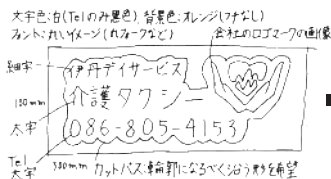 文字色:白(Telのみ黒色) 背景色:オレンジ(フチなし)
フォント:丸いイメージ(丸フォークなど)
会社のロゴマークの画像
細字
伊丹デイサービス
130mm
介護タクシー
太字
086-805-4153
Tel
太字
380mm
カットパス:輪郭になるべく沿う形を希望